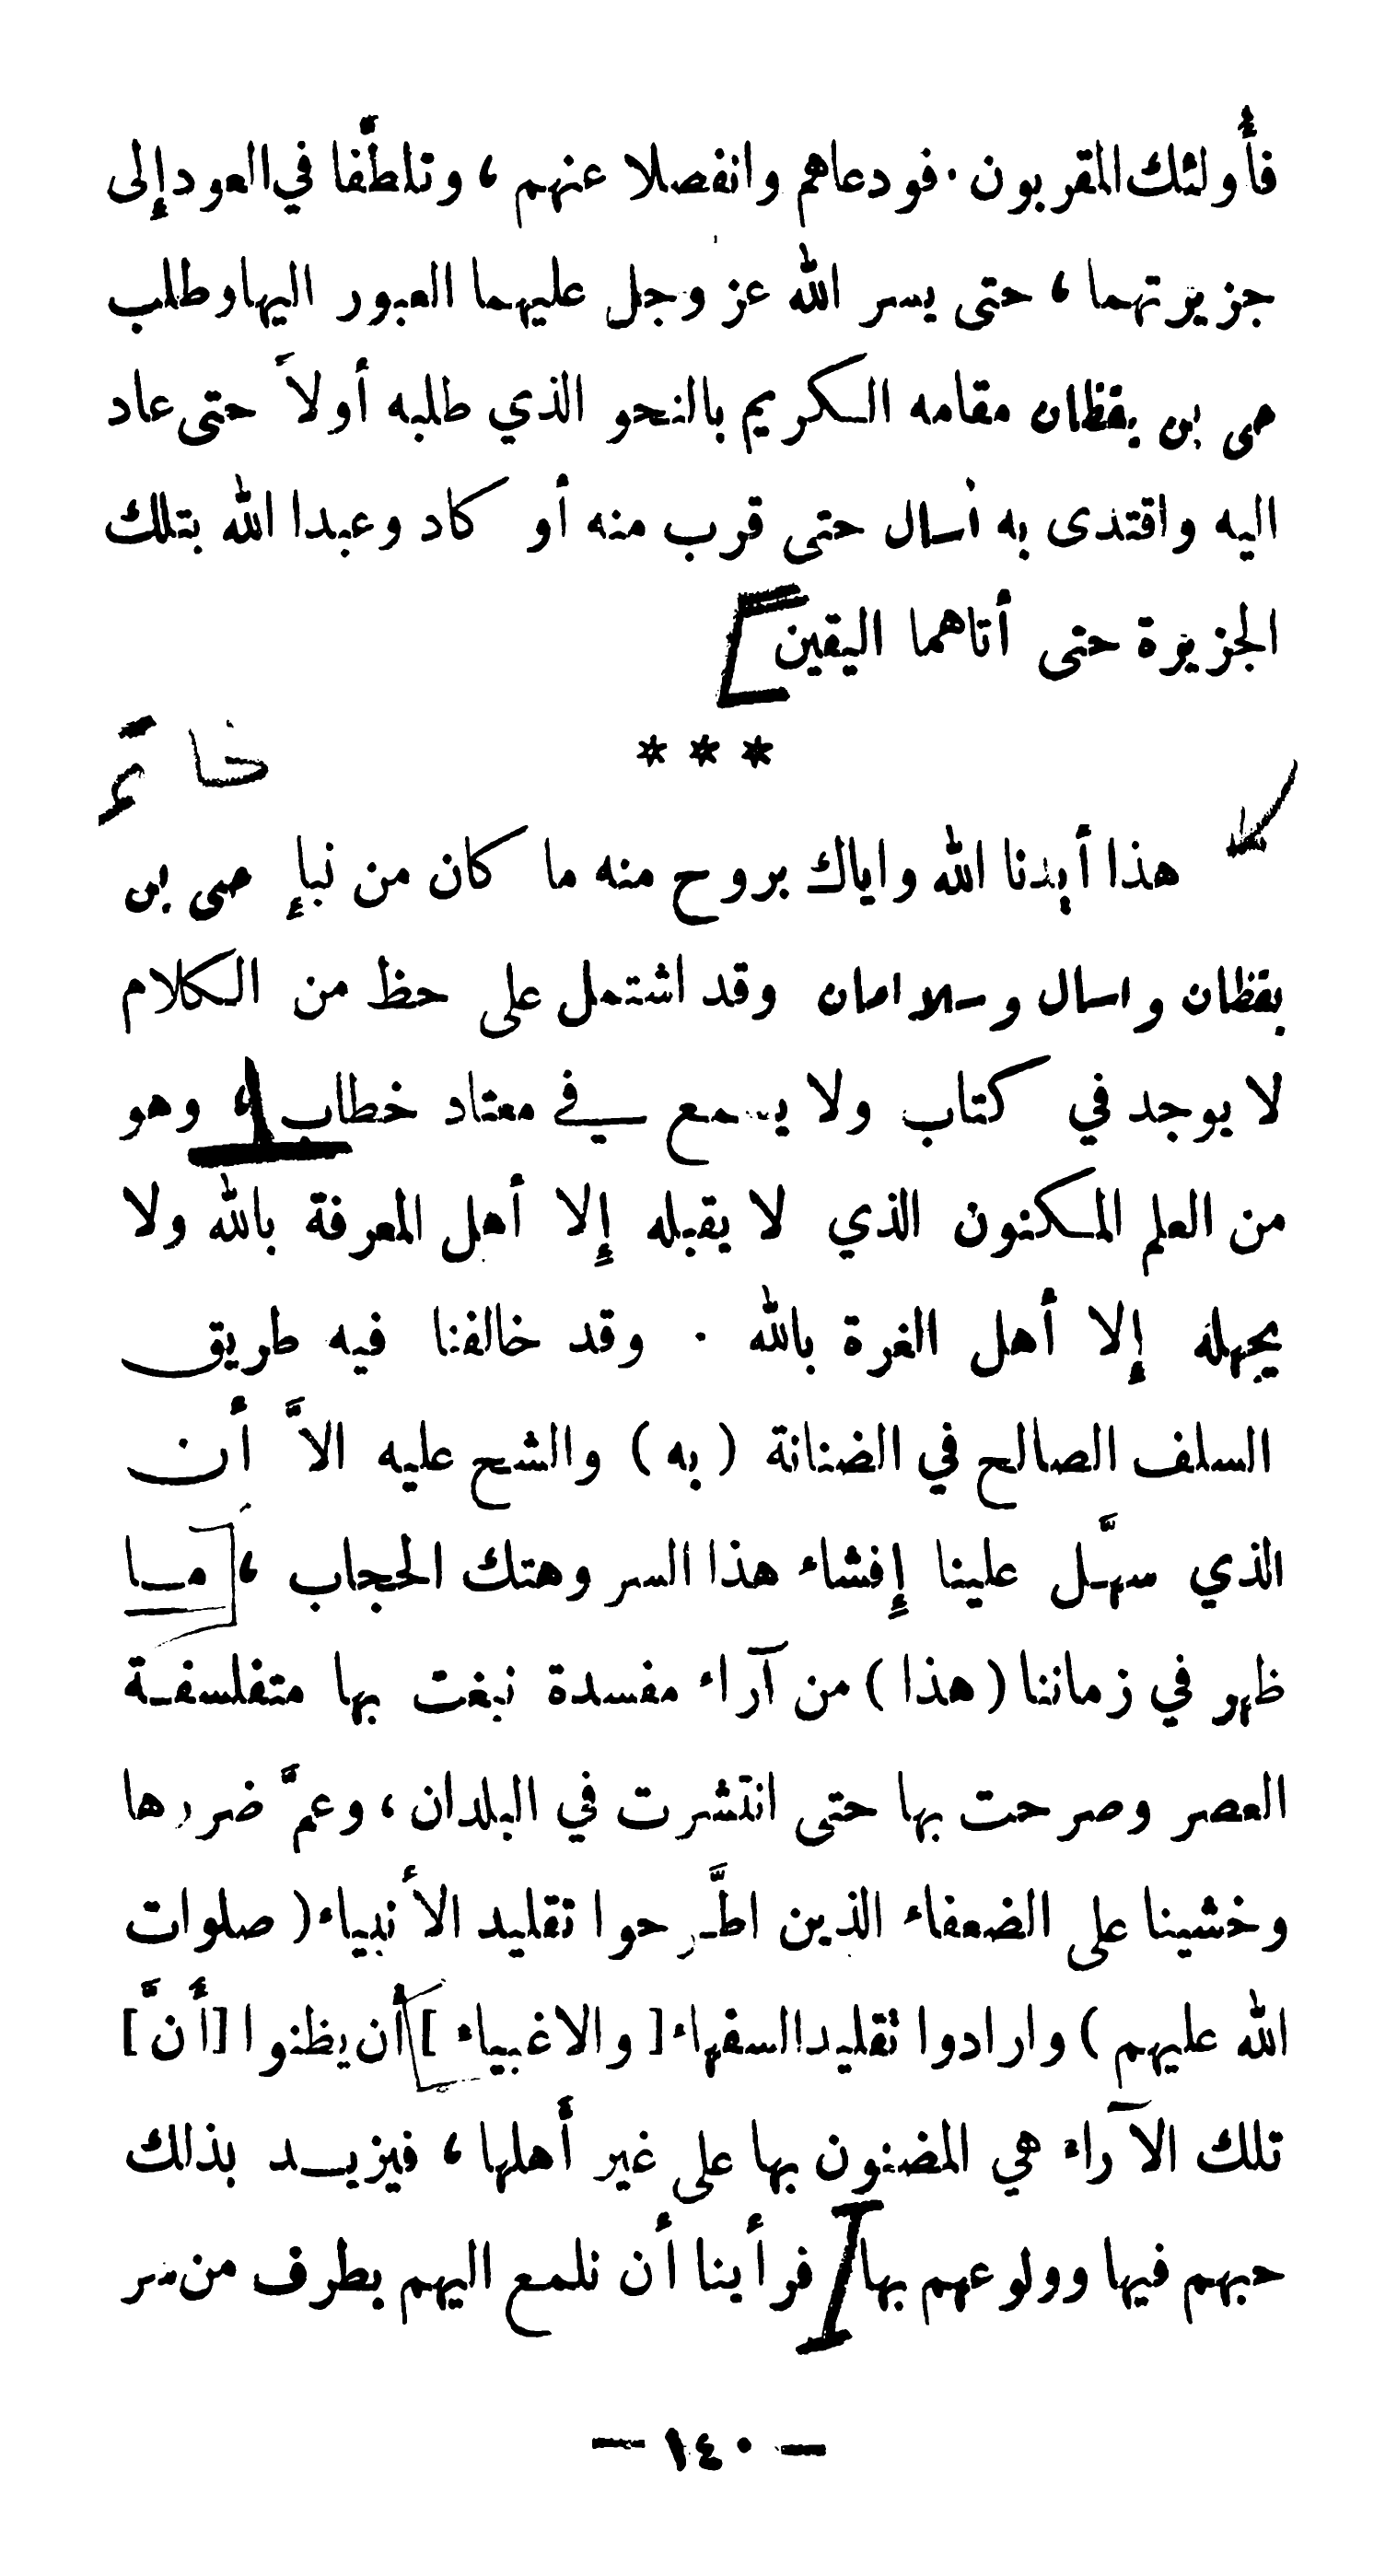 فأولئك المقربون. فودعاهم وانفصلا عنهم، وتلطَّفا في العود إلى
جزيرتهما، حتى يسر الله عز وجل عليهما العبور اليها وطلب
حي بن يقظان مقامه الكريم بالنحو الذي طلبه أولاً حتى عاد
اليه واقتدى به أسال حتى قرب منه أو كاد وعبدا الله بتلك
الجزيرة حتى أتاهما اليقين
* * *
هذا أيدنا الله واياك بروح منه ما كان من نبإ حي بن
يقظان واسال وسلامان وقد اشتمل على حظ من الكلام
لا يوجد في كتاب ولا يسمع في معتاد خطاب، وهو
من العلم المكنون الذي لا يقبله إلا أهل المعرفة بالله ولا
يجهله إلا أهل الغرة بالله . وقد خالفنا فيه طريق
السلف الصالح في الضنانة (به) والشح عليه الاَّ أن
الذي سهَّل علينا إفشاء هذا السر وهتك الحجاب، ما
ظهر في زماننا (هذا) من آراء مفسدة نبغت بها متفلسفة
العصر وصرحت بها حتى انتشرت في البلدان، وعمَّ ضررها
وخشينا على الضعفاء الذين اطَّرحوا تقليد الأنبياء (صلوات
الله عليهم) وارادوا تقليد السفهاء [والاغبياء] أن يظنوا [أنَّ]
تلك الآراء هي المضنون بها على غير أهلها، فيزيد بذلك
حبهم فيها وولوعهم بها فرأينا أن نلمع اليهم بطرف من سر
— ١٤٠ —